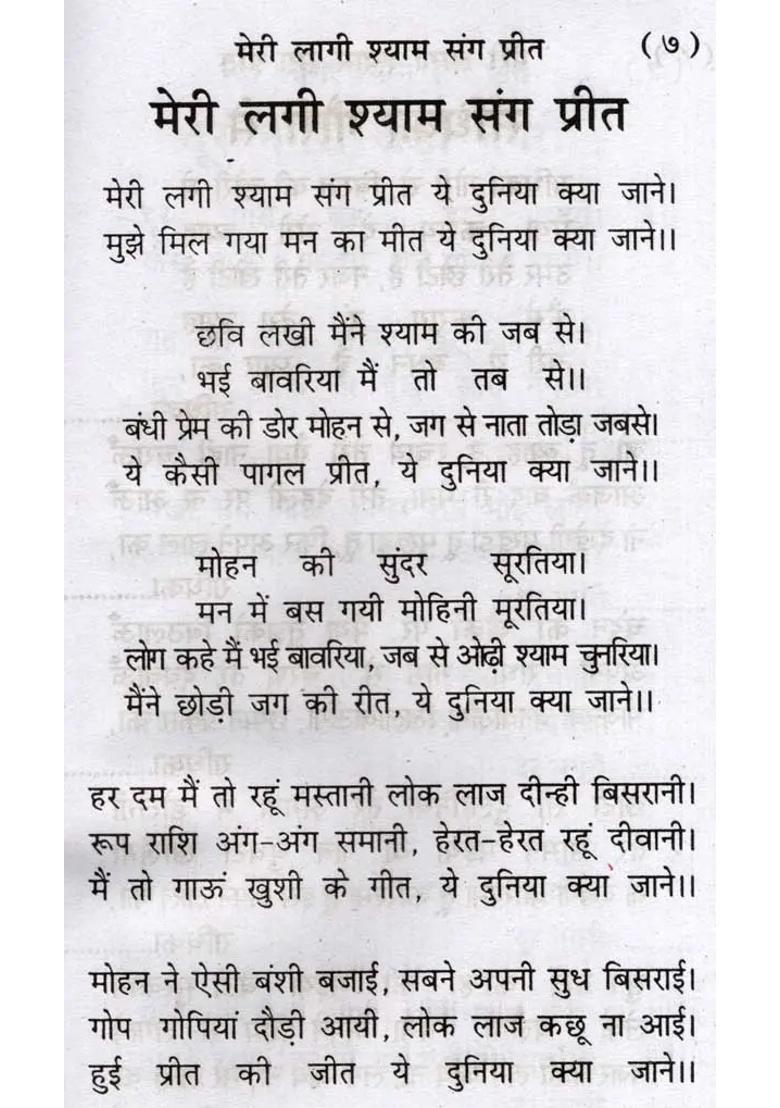 मेरी लागी श्याम संग प्रीत (७)
मेरी लगी श्याम संग प्रीत
मेरी लगी श्याम संग प्रीत ये दुनिया क्या जाने।
मुझे मिल गया मन का मीत ये दुनिया क्या जाने।।
छवि लखी मैंने श्याम की जब से।
भई बावरिया मैं तो तब से।।
बंधी प्रेम की डोर मोहन से, जग से नाता तोड़ा जबसे।
ये कैसी पागल प्रीत, ये दुनिया क्या जाने।।
मोहन की सुंदर सूरतिया।
मन में बस गयी मोहिनी मूरतिया।
लोग कहे मैं भई बावरिया, जब से ओढ़ी श्याम चुनरिया।
मैंने छोड़ी जग की रीत, ये दुनिया क्या जाने।।
हर दम मैं तो रहूं मस्तानी लोक लाज दीन्ही बिसरानी।
रूप राशि अंग-अंग समानी, हेरत-हेरत रहूं दीवानी।
मैं तो गाऊं खुशी के गीत, ये दुनिया क्या जाने।।
मोहन ने ऐसी बंशी बजाई, सबने अपनी सुध बिसराई।
गोप गोपियां दौड़ी आयी, लोक लाज कछू ना आई।
हुई प्रीत की जीत ये दुनिया क्या जाने।।